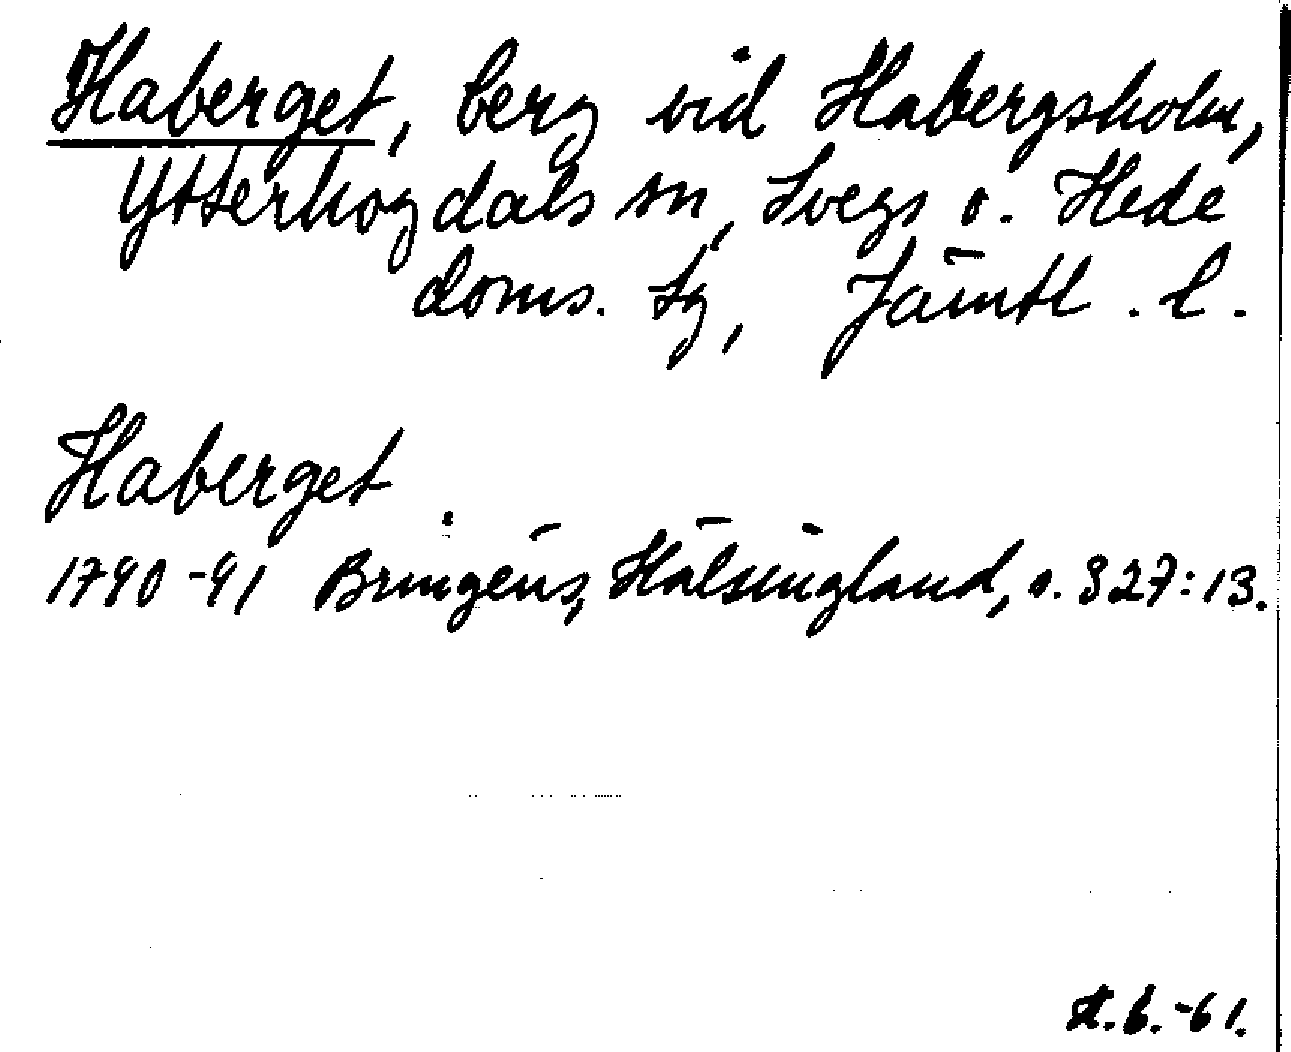 Haberget, berg vid Habergsholm,
Ytterhogdals sn, Svegs o. Hede
doms. Lg, Jämtl. l.
Haberget
1790-91 Bringéus, Hälsingland, s. 327:13.